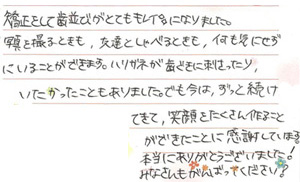 矯正をして歯並びがとてもキレイになりました。
写真を撮るときも、友達としゃべるときも、何も気にせず
にいることができます。ハリガネが歯ぐきに刺さったり、
いたかったこともありました。でも今は、ずっと続け
てきて、笑顔をたくさん作ること
ができたことに感謝しています。
本当にありがとうございました!
みなさんもがんばってください!